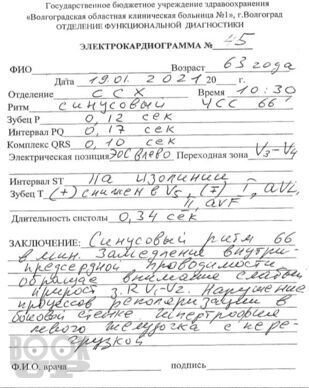 Государственное бюджетное учреждение здравоохранения
«Волгоградская областная клиническая больница №1», г.Волгоград
ОТДЕЛЕНИЕ ФУНКЦИОНАЛЬНОЙ ДИАГНОСТИКИ
ЭЛЕКТРОКАРДИОГРАММА № 45
ФИО Возраст 63 года
Дата 19.01. 2021 20 г.
Отделение ССХ Время 10:30
Ритм синусовый ЧСС 66
Зубец Р 0,12 сек
Интервал PQ 0,17 сек
Комплекс QRS 0,10 сек
Электрическая позиция ЭОС влево Переходная зона V3-V4
Интервал ST на изолинии
Зубец Т (+) снижен в V5, (∓) I, aVL,
II, aVF
Длительность систолы 0,34 сек
ЗАКЛЮЧЕНИЕ: Синусовый ритм 66
в мин. Замедление внутри-
предсердной проводимости
обращает внимание слабый
прирост з.R V1-V2. Нарушение
процессов реполяризации в
боковой стенке. Гипертрофия
левого желудочка с пере-
грузкой
Ф.И.О. врача подпись
BOOK